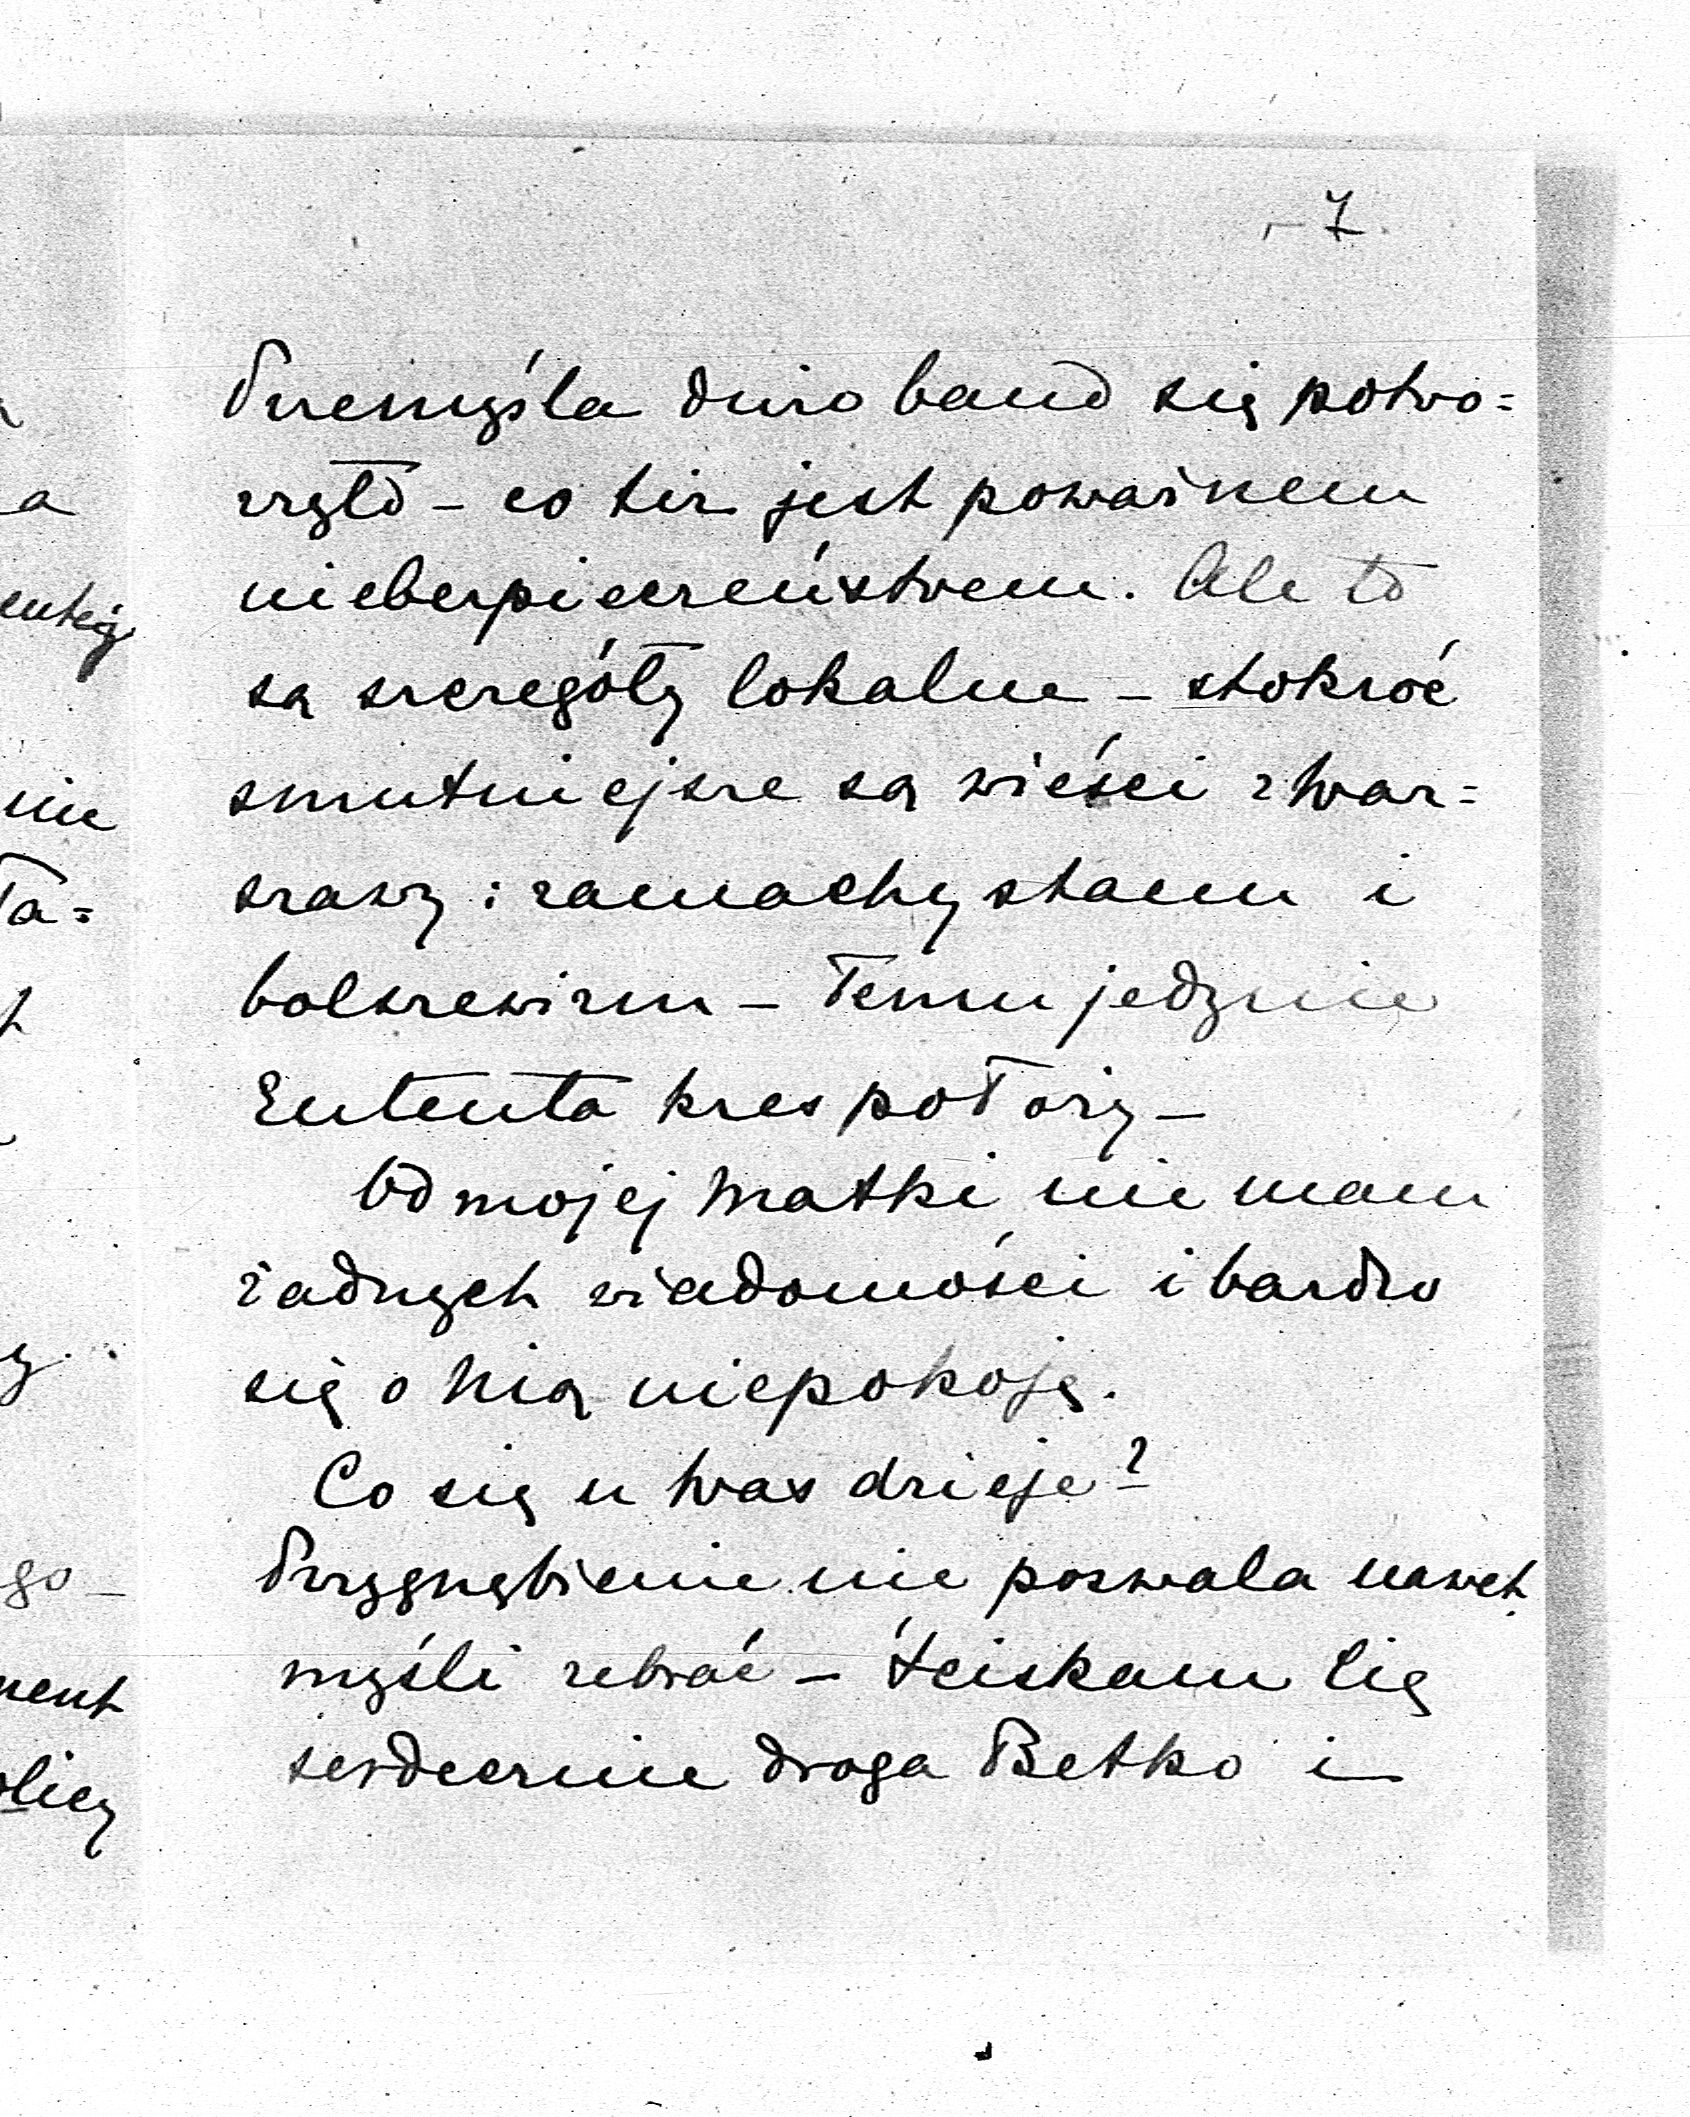 - 7
Przemyśla dużo band się potwo=
rzyło - co też jest poważnem
niebezpieczeństwem. Ale to
są szczegóły lokalne - stokroć
smutniejsze są wieści z War=
szawy: zamachy stanu i
bolszewizm - Temu jedynie
Ententa kres położy -
Od mojej Matki nie mam
żadnych wiadomości i bardzo
się o Nią niepokoję.
Co się u Was dzieje?
Przygnębienie nie pozwala nawet
myśli zebrać - Ściskam Cię
serdecznie droga Betko i
a
nie
ła=
y
go -
ment